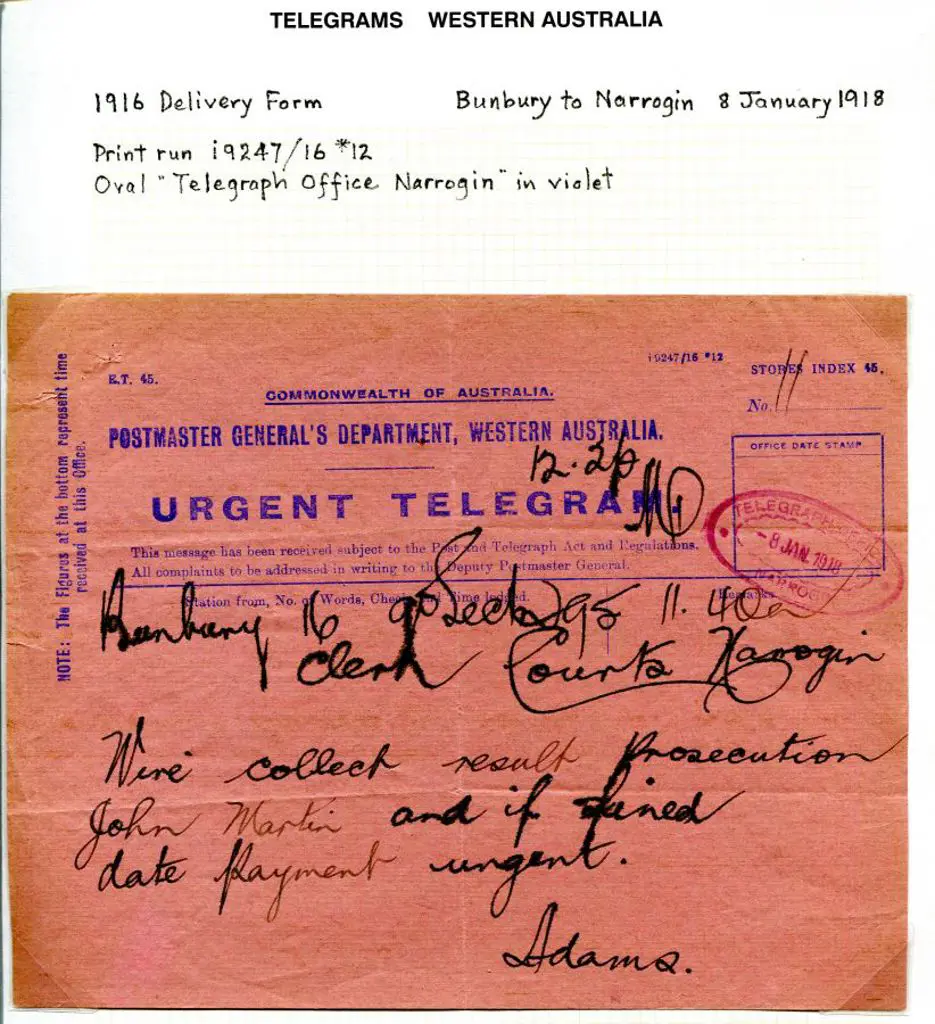 TELEGRAMS WESTERN AUSTRALIA
1916 Delivery Form Bunbury to Narrogin 8 January 1918
Print run i9247/16 *12
Oval "Telegraph Office Narrogin" in violet
i9247/16 *12
E.T. 45.
STORES INDEX 45.
COMMONWEALTH OF AUSTRALIA.
No. 11
POSTMASTER GENERAL'S DEPARTMENT, WESTERN AUSTRALIA.
OFFICE DATE STAMP
12.2p
URGENT TELEGRAM.
TELEGRAPH
-8 JAN 1918
NARROG
This message has been received subject to the Post and Telegraph Act and Regulations.
All complaints to be addressed in writing to the Deputy Postmaster General.
Station from, No. of Words, Check and Time lodged. Remarks
Bunbury 16 95 11.40a
Clerk Courts Narrogin
Wire collect result prosecution
John Martin and if fined
date payment urgent.
Adams.
NOTE: The Figures at the bottom represent time
received at this Office.